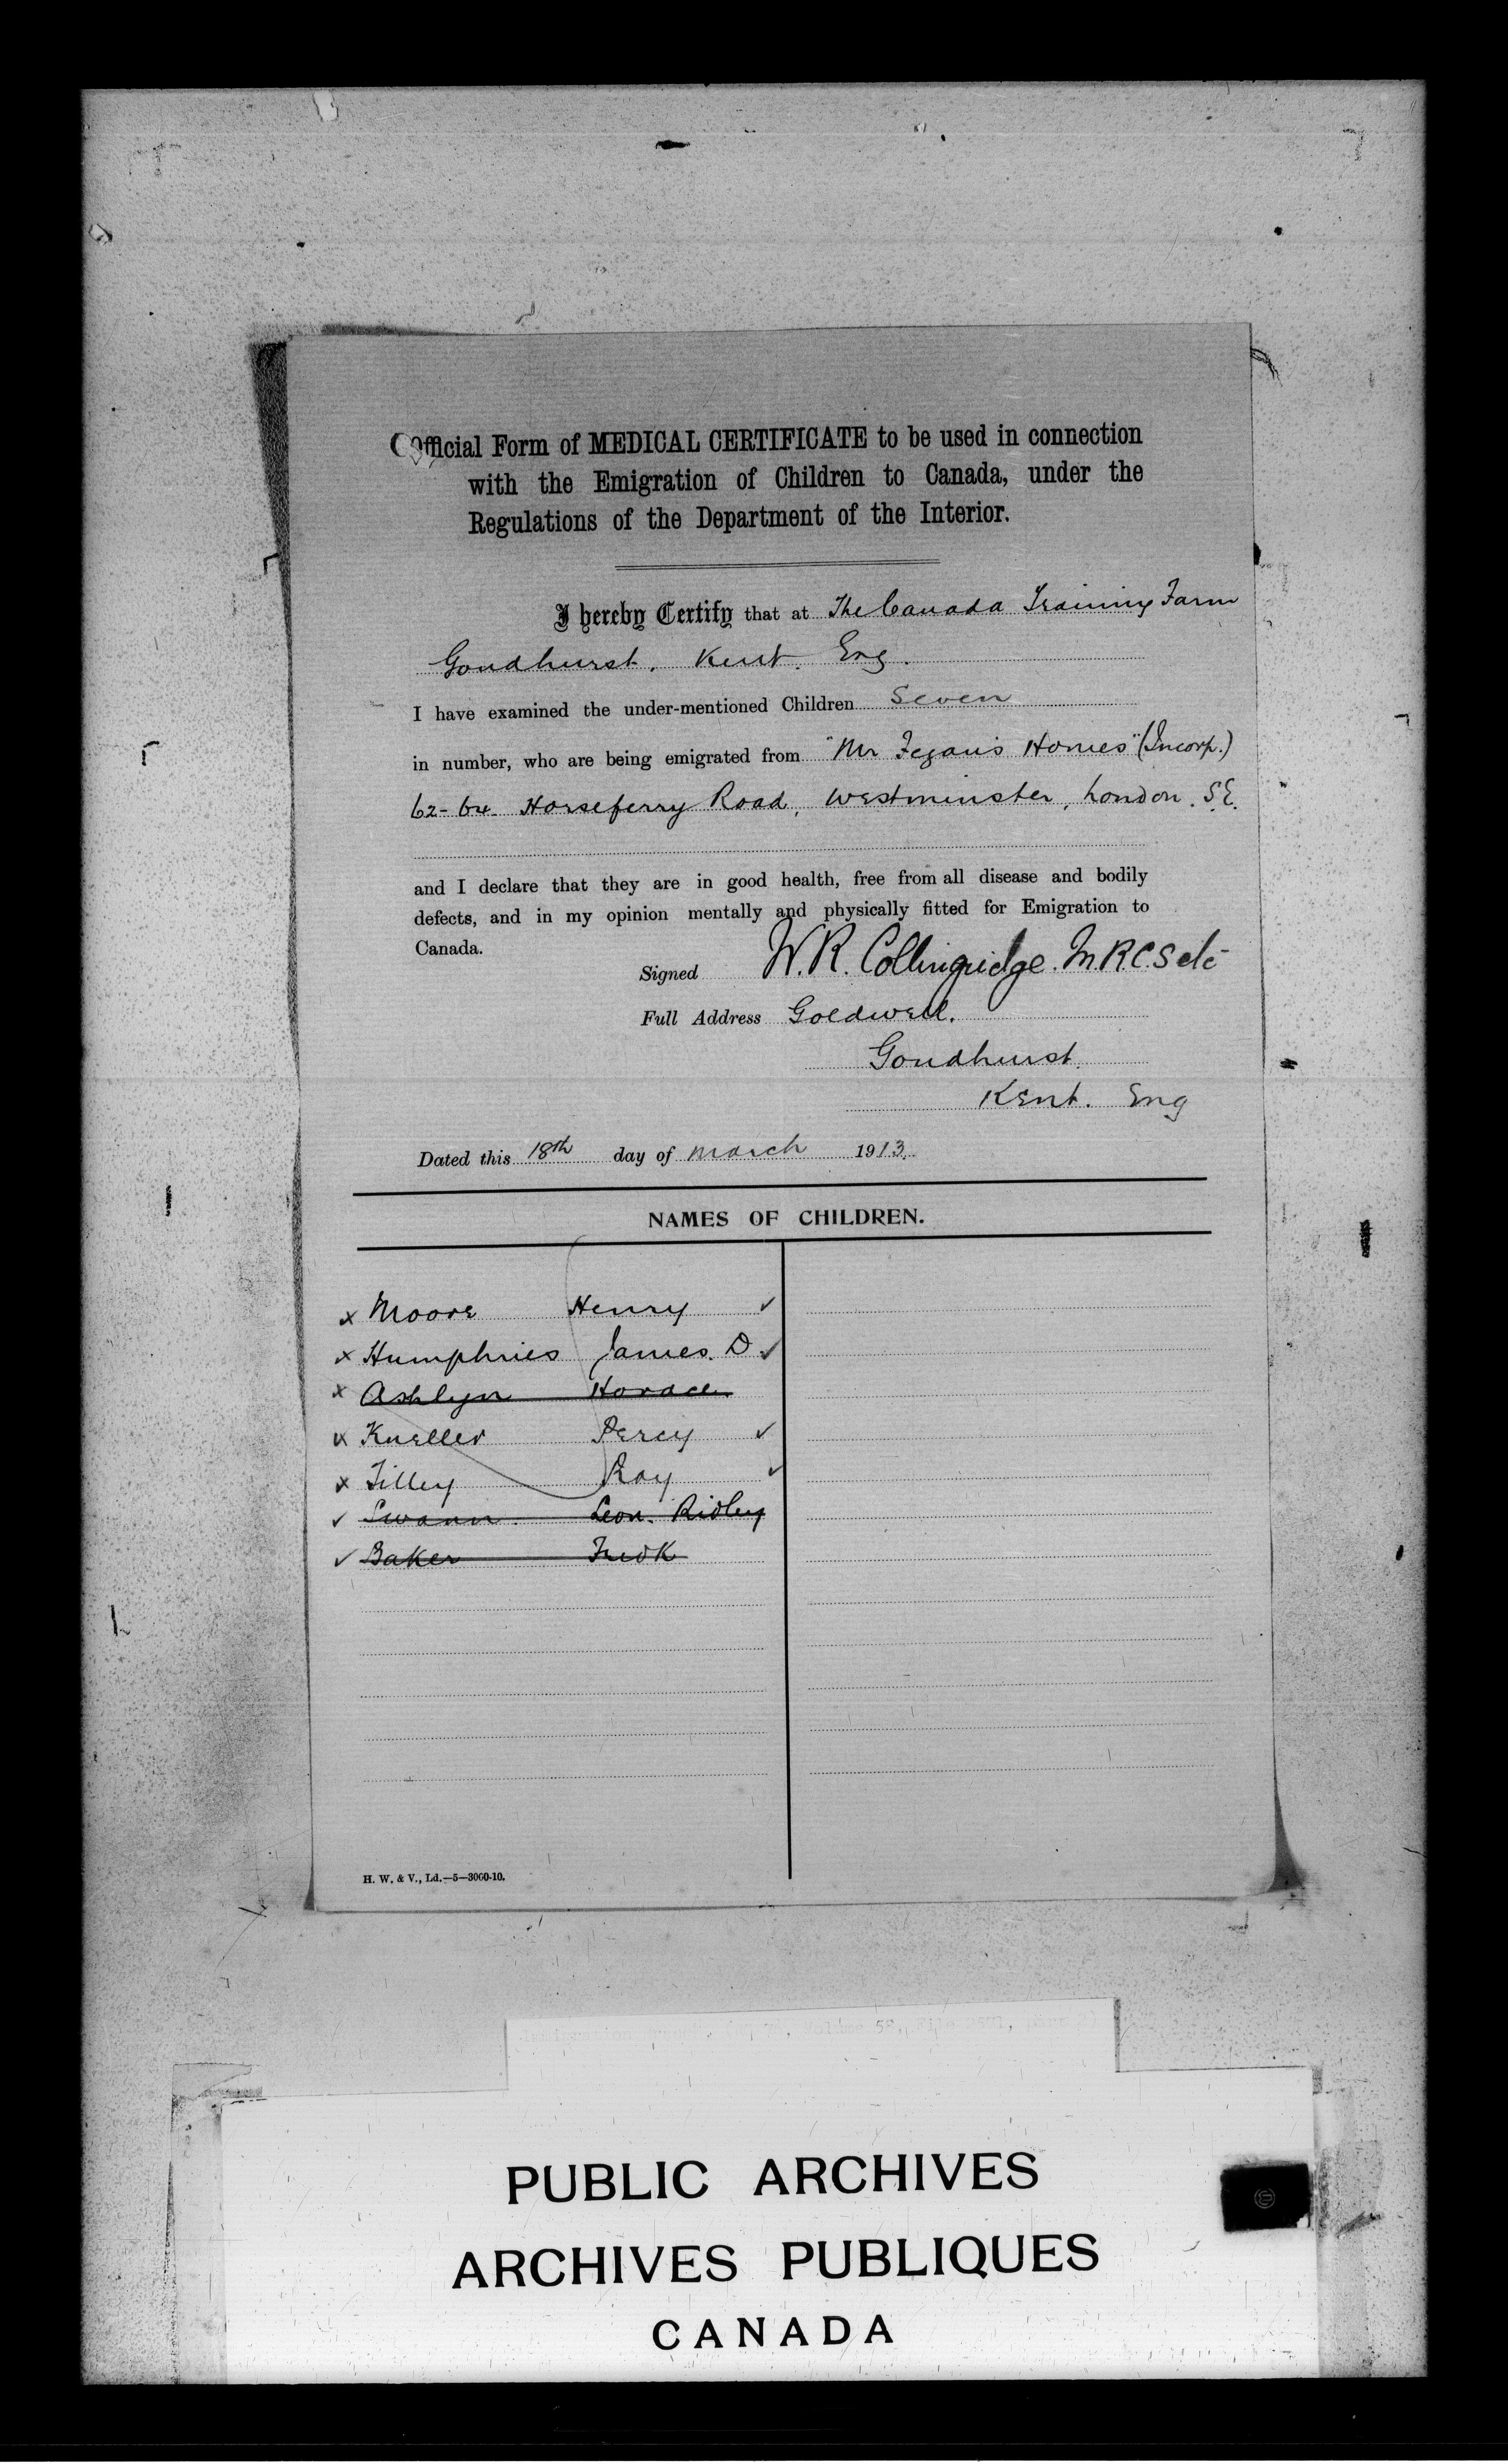 Official Form of MEDICAL CERTIFICATE to be used in connection
with the Emigration of Children to Canada, under the
Regulations of the Department of the Interior.
I hereby Certify that at The Canada Training Farm
Goudhurst. Kent. Eng.
I have examined the under-mentioned Children Seven
in number, who are being emigrated from "Mr Fegan's Homes" (Incorp.)
62-64 Horseferry Road, Westminster, London. S.E.
and I declare that they are in good health, free from all disease and bodily
defects, and in my opinion mentally and physically fitted for Emigration to
Canada.
Signed W. R. Collingridge. M.R.C.S etc
Full Address Goldwell.
Goudhurst.
Kent. Eng
Dated this 18th day of March 1913.
NAMES OF CHILDREN.
x Moore Henry ✓
x Humphries James. D. ✓
x Ashlyn Horace
x Kneller Percy ✓
x Tilley Roy ✓
✓ Swann. Leon. Ridley
✓ Baker Fredk
H. W. & V., Ld.—5—3000-10.
PUBLIC ARCHIVES
ARCHIVES PUBLIQUES
CANADA